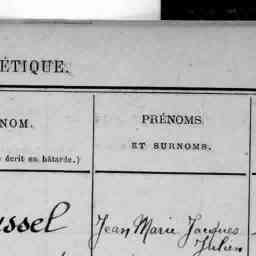 ÉTIQUE.
NOM.
écrit en bâtarde.)
PRÉNOMS
ET SURNOMS.
ussel
Jean Marie Jacques
Julien